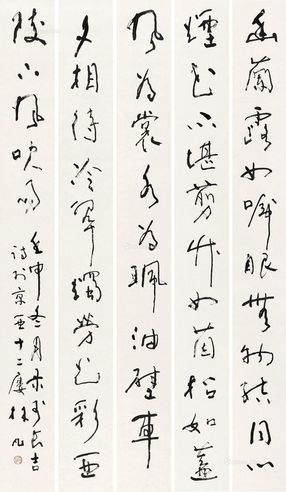 幽蘭露如啼眼無物結同心
煙花不堪剪草如茵松如蓋
風為裳水為珮油壁車
夕相待冷翠燭勞光彩西
陵下風吹雨
壬申冬月录李長吉
詩於京西十二廔林凡